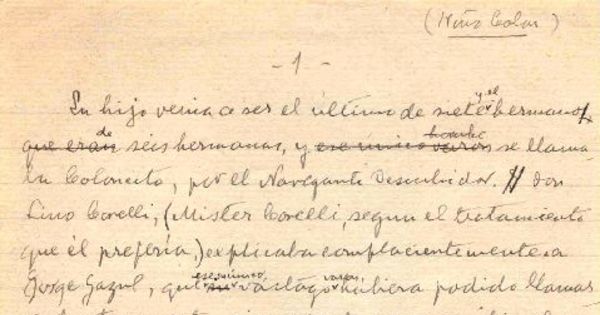 (Niño Colon)
- 1 -
Su hijo venía a ser el último de siete y el hermanos,
que eran de seis hermanas, y ese único varon hombre se llama
ba Coloncito, por el Navegante Descubridor. // Don
Lino Corelli, (Mister Corelli, segun el tratamiento
que él prefería,) explicaba complacientemente a
Jorge Gazul, que su ese único vástago varon hubiera podido llamar